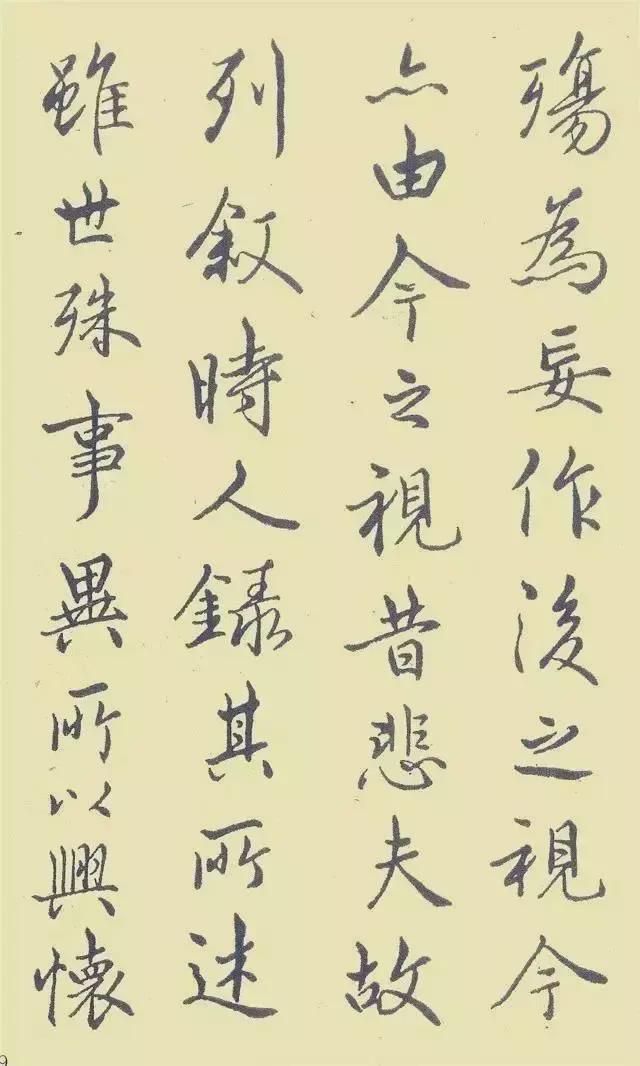 殤為妄作後之視今
亦由今之視昔悲夫故
列敘時人錄其所述
雖世殊事異所以興懷
9